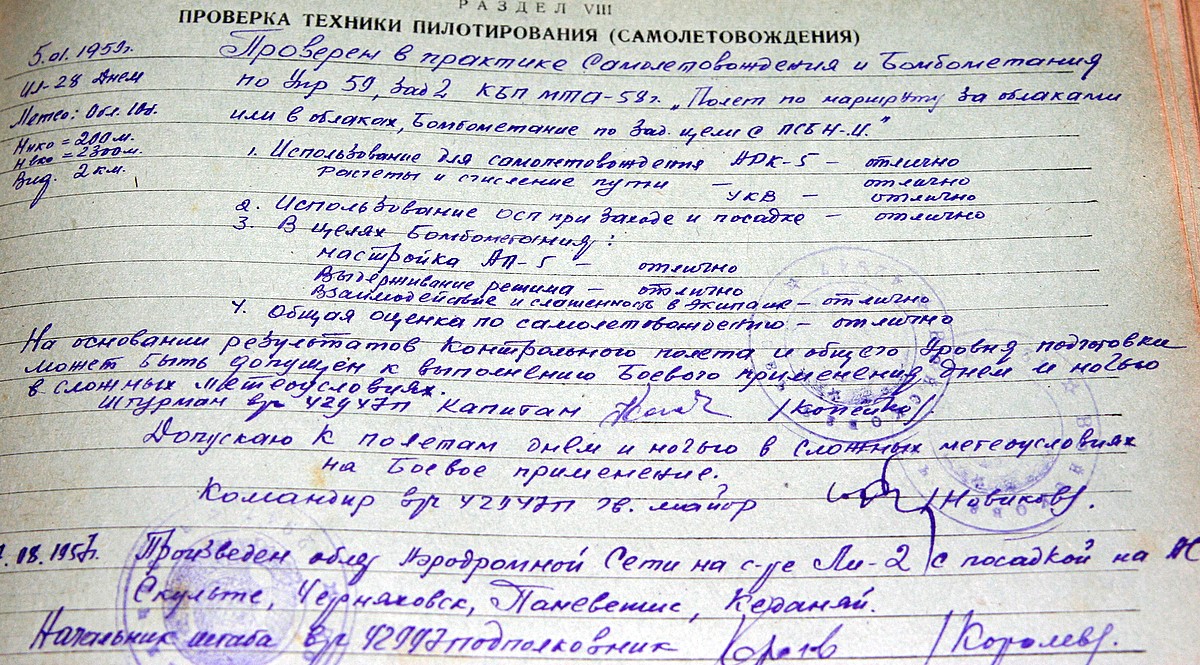 РАЗДЕЛ VIII
ПРОВЕРКА ТЕХНИКИ ПИЛОТИРОВАНИЯ (САМОЛЕТОВОЖДЕНИЯ)
5.01.1959г. Проверен в практике Самолетовождения и Бомбометания
Ил-28 Днем по Упр 59, Зад 2 КБП МТА-58г. „Полет по маршруту за облаками
Метео: Обл. 10б. или в облаках, Бомбометание по зад. цели с ПСБН-М."
Ннко = 200м.
Нвко = 2300м.
Вид. 2 км.
1. Использование для самолетовождения АРК-5 – отлично
Расчеты и счисление пути – отлично
УКВ – отлично
2. Использование ОСП при заходе и посадке – отлично
3. В целях Бомбометания:
настройка АП-5 – отлично
Выдерживание режима – отлично
Взаимодействие и слаженность в экипаже – отлично
4. Общая оценка по самолетовождению – отлично
На основании результатов Контрольного полета и общего уровня подготовки
может быть допущен к выполнению Боевого применения днем и ночью
в сложных метеоусловиях.
Штурман в/ч 42947п Капитан
Допускаю к полетам днем и ночью в сложных метеоусловиях
на Боевое применение.
Командир в/ч 42947п гв. майор /Новиков/.
.08.1957г. Произведен облёт Аэродромной Сети на с-те Ли-2 с посадкой на
Скульте, Черняховск, Паневежис, Кеданяй.
Начальник штаба в/ч 42947п подполковник /Королев/.